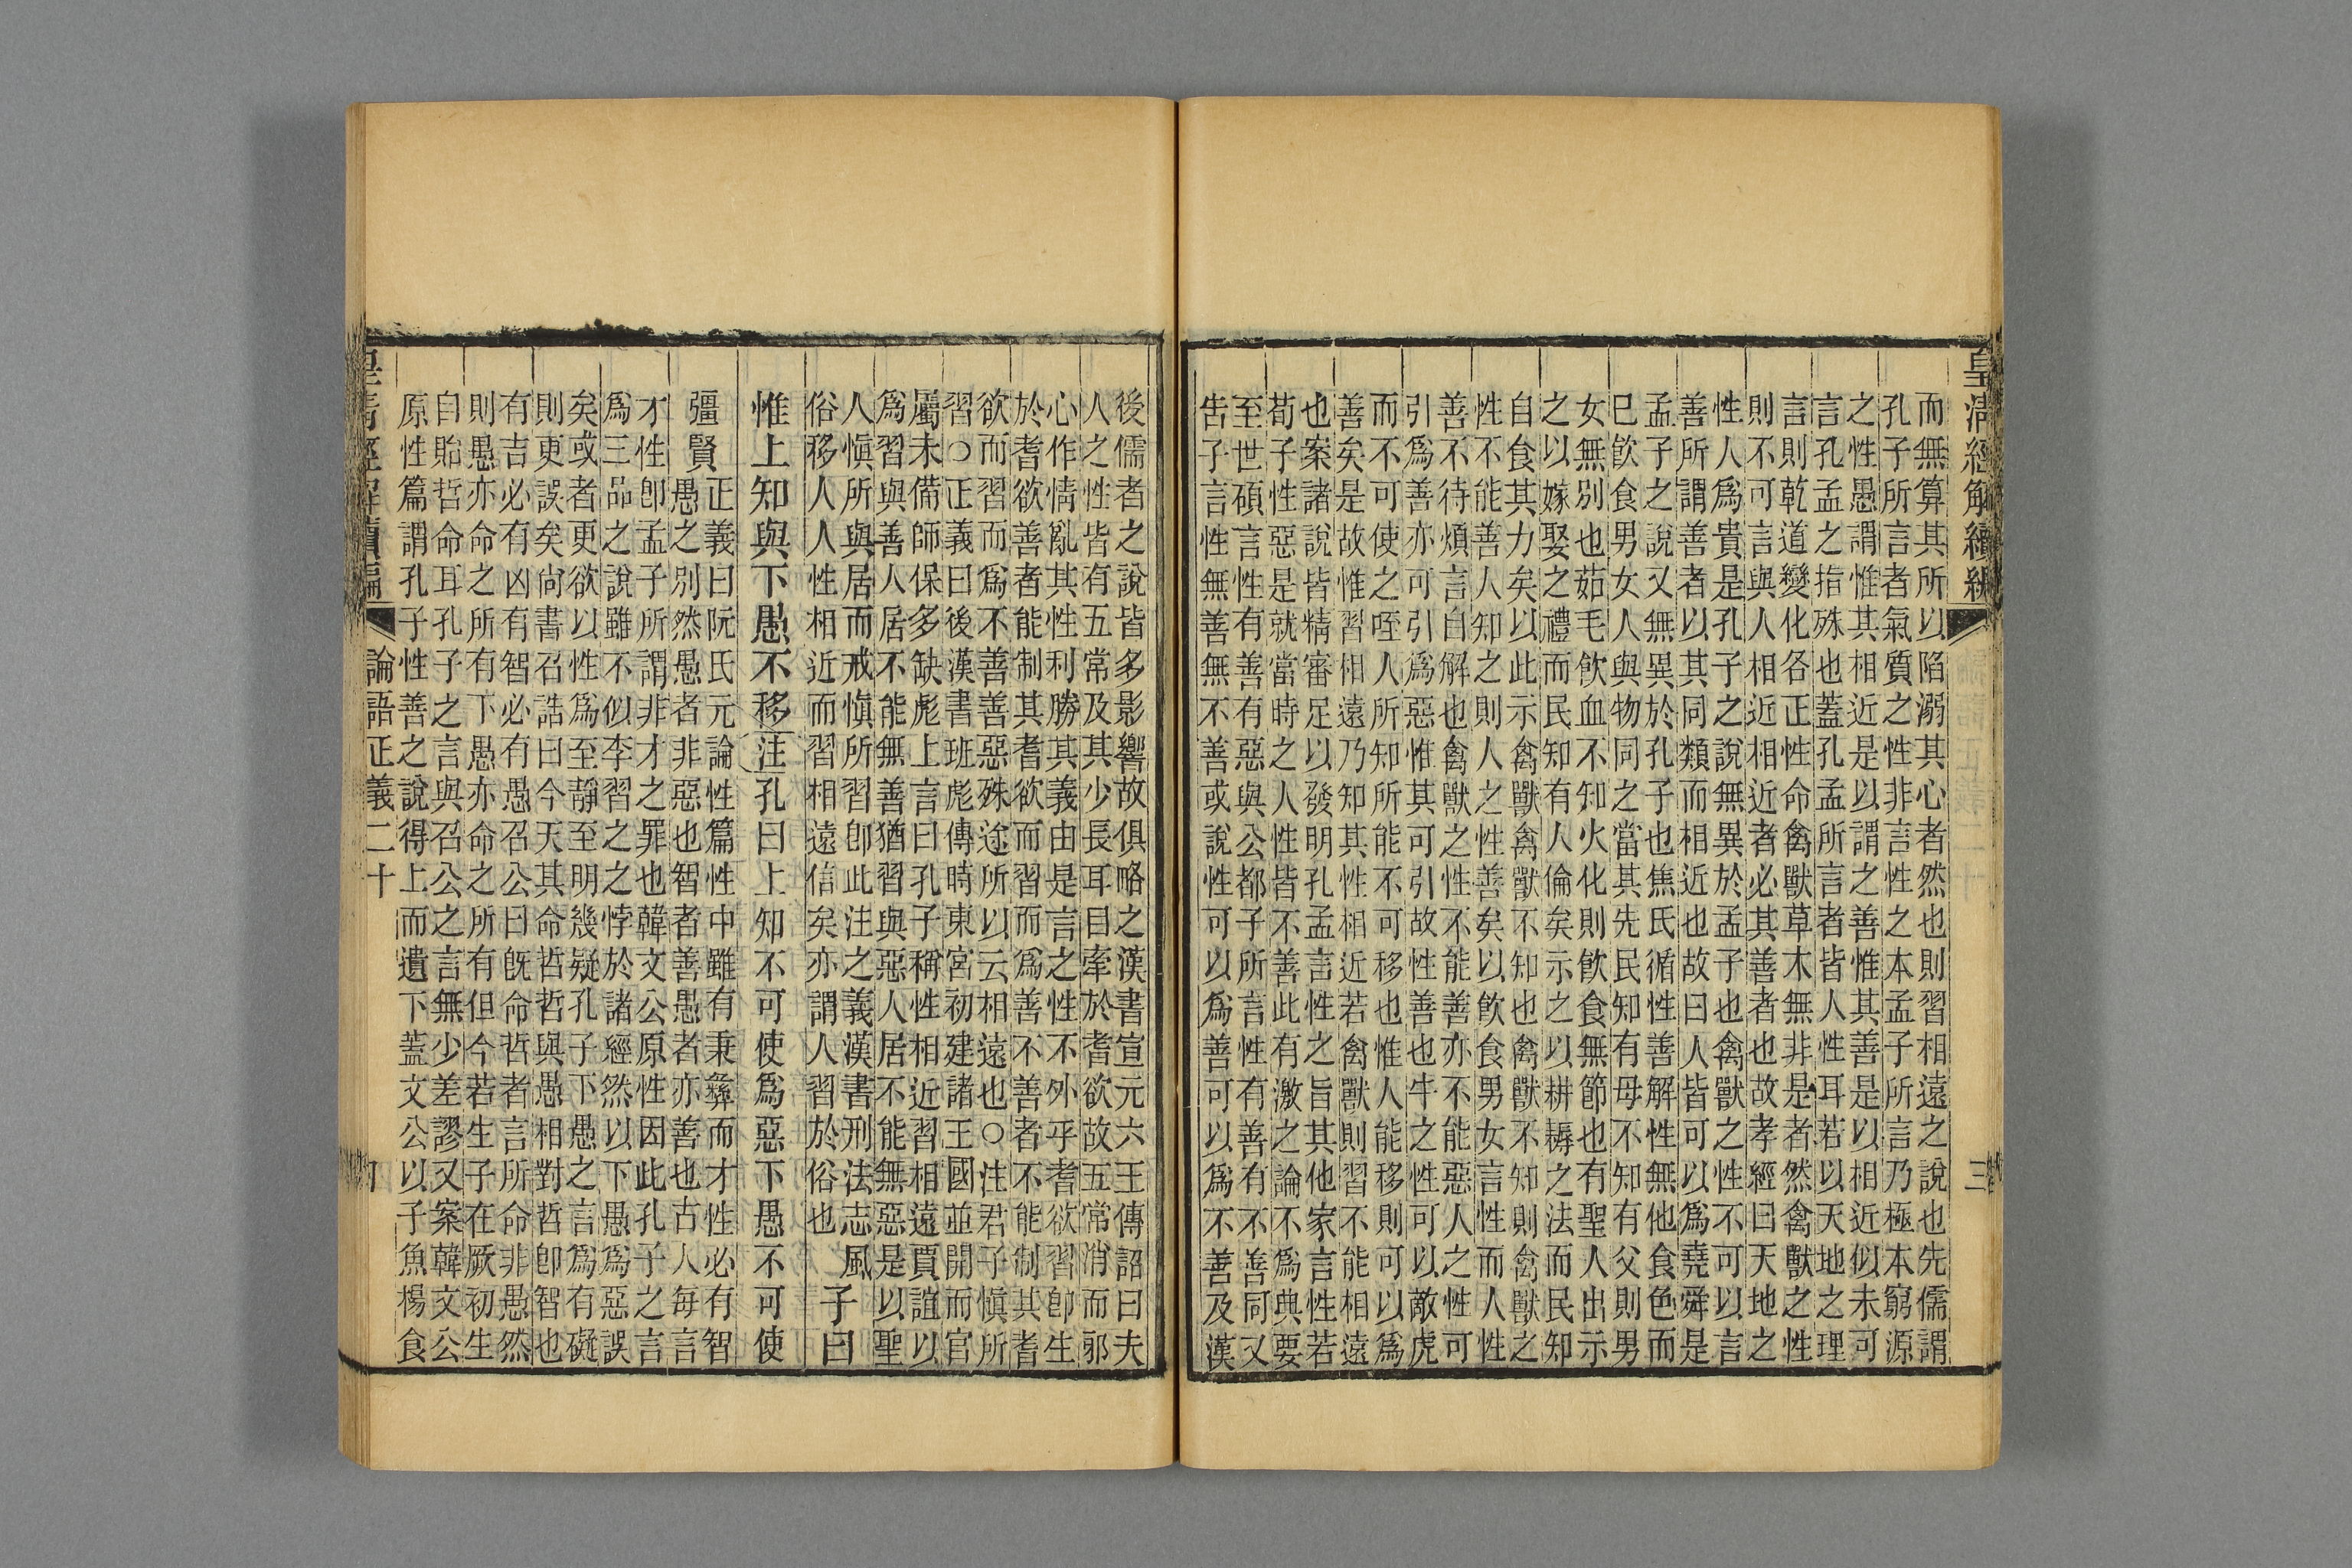 皇清經解續編
三
而無算其所以陷溺其心者然也則習相遠之說也先儒謂
孔子所言者氣質之性非言性之本孟子所言乃極本窮源
之性愚謂惟其相近是以謂之善惟其善是以相近似未可
言孔孟之指殊也蓋孔孟所言者皆人性耳若以天地之理
言則乾道變化各正性命禽獸草木無非是者然禽獸之性
則不可言與人相近相近者必其善者也故孝經曰天地之
性人爲貴是孔子之說無異於孟子也禽獸之性不可以言
善所謂善者以其同類而相近也故曰人皆可以爲堯舜是
孟子之說又無異於孔子也焦氏循性善解性無他食色而
巳飮食男女人與物同之當其先民知有母不知有父則男
女無別也茹毛飮血不知火化則飮食無節也有聖人出示
之以嫁娶之禮而民知有人倫矣示之以耕耨之法而民知
自食其力矣以此示禽獸禽獸不知也禽獸不知則禽獸之
性不能善人知之則人之性善矣以飮食男女言性而人性
善不待煩言自解也禽獸之性不能善亦不能惡人之性可
引爲善亦可引爲惡惟其可引故性善也牛之性可以敵虎
而不可使之咥人所知所能不可移也惟人能移則可以爲
善矣是故惟習相遠乃知其性相近若禽獸則習不能相遠
也案諸說皆精審足以發明孔孟言性之旨其他家言性若
荀子性惡是就當時之人性皆不善此有激之論不爲典要
至世碩言性有善有惡與公都子所言性有善有不善同又
告子言性無善無不善或說性可以爲善可以爲不善及漢
後儒者之說皆多影響故俱略之漢書宣元六王傳詔曰夫
人之性皆有五常及其少長耳目牽於耆欲故五常消而邪
心作情亂其性利勝其義由是言之性不外乎耆欲習卽生
於耆欲善者能制其耆欲而習而爲善不善者不能制其耆
欲而習而爲不善善惡殊途所以云相遠也○注君子愼所
習○正義曰後漢書班彪傳時東宮初建諸王國並開而官
屬未備師保多缺彪上言曰孔子稱性相近習相遠賈誼以
爲習與善人居不能無善猶習與惡人居不能無惡是以聖
人愼所與居而戒愼所習卽此注之義漢書刑法志風
俗移人人性相近而習相遠信矣亦謂人習於俗也
子曰
惟上知與下愚不移注孔曰上知不可使爲惡下愚不可使
彊賢
正義曰阮氏元論性篇性中雖有秉彝而才性必有智
愚之別然愚者非惡也智者善愚者亦善也古人每言
才性卽孟子所謂非才之罪也韓文公原性因此孔子之言
爲三品之說雖不似李習之之悖於諸經然以下愚爲惡誤
矣或者更欲以性爲至靜至明幾疑孔子下愚之言爲有礙
則更誤矣尙書召誥曰今天其命哲哲與愚相對哲卽智也
有吉必有凶有智必有愚召公曰旣命哲者言所命非愚然
則愚亦命之所有下愚亦命之所有但今若生子在厥初生
自貽哲命耳孔子之言與召公之言無少差謬又案韓文公
原性篇謂孔子性善之說得上而遺下蓋文公以子魚楊食
皇清經解續編 論語正義二十